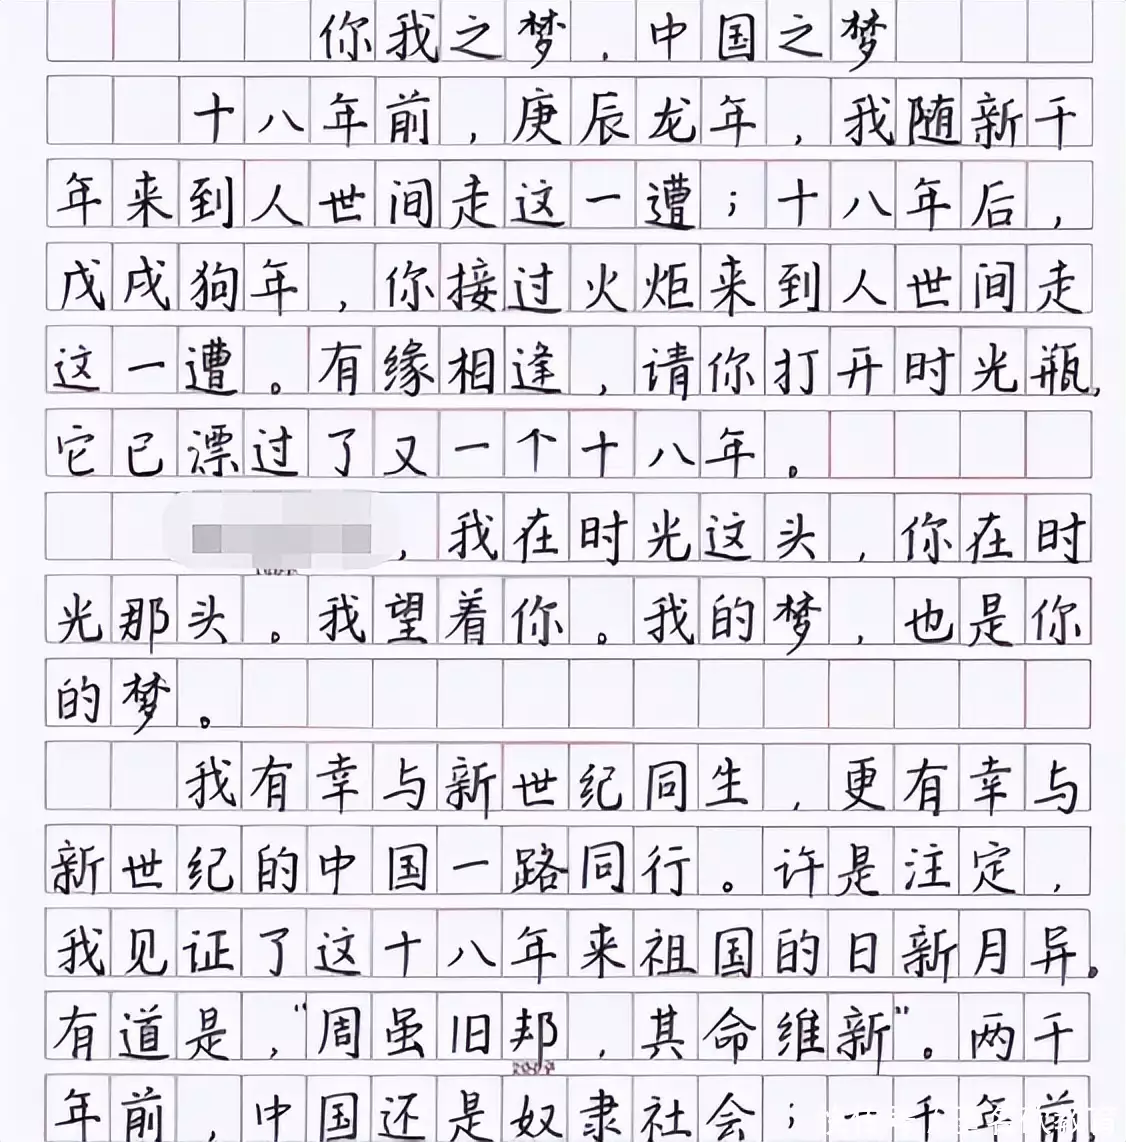 你我之梦，中国之梦
十八年前，庚辰龙年，我随新千
年来到人世间走这一遭；十八年后，
戊戌狗年，你接过火炬来到人世间走
这一遭。有缘相逢，请你打开时光瓶，
它已漂过了又一个十八年。
，我在时光这头，你在时
光那头。我望着你。我的梦，也是你
的梦。
我有幸与新世纪同生，更有幸与
新世纪的中国一路同行。许是注定，
我见证了这十八年来祖国的日新月异。
有道是，“周虽旧邦，其命维新”。两千
年前，中国还是奴隶社会；千年前